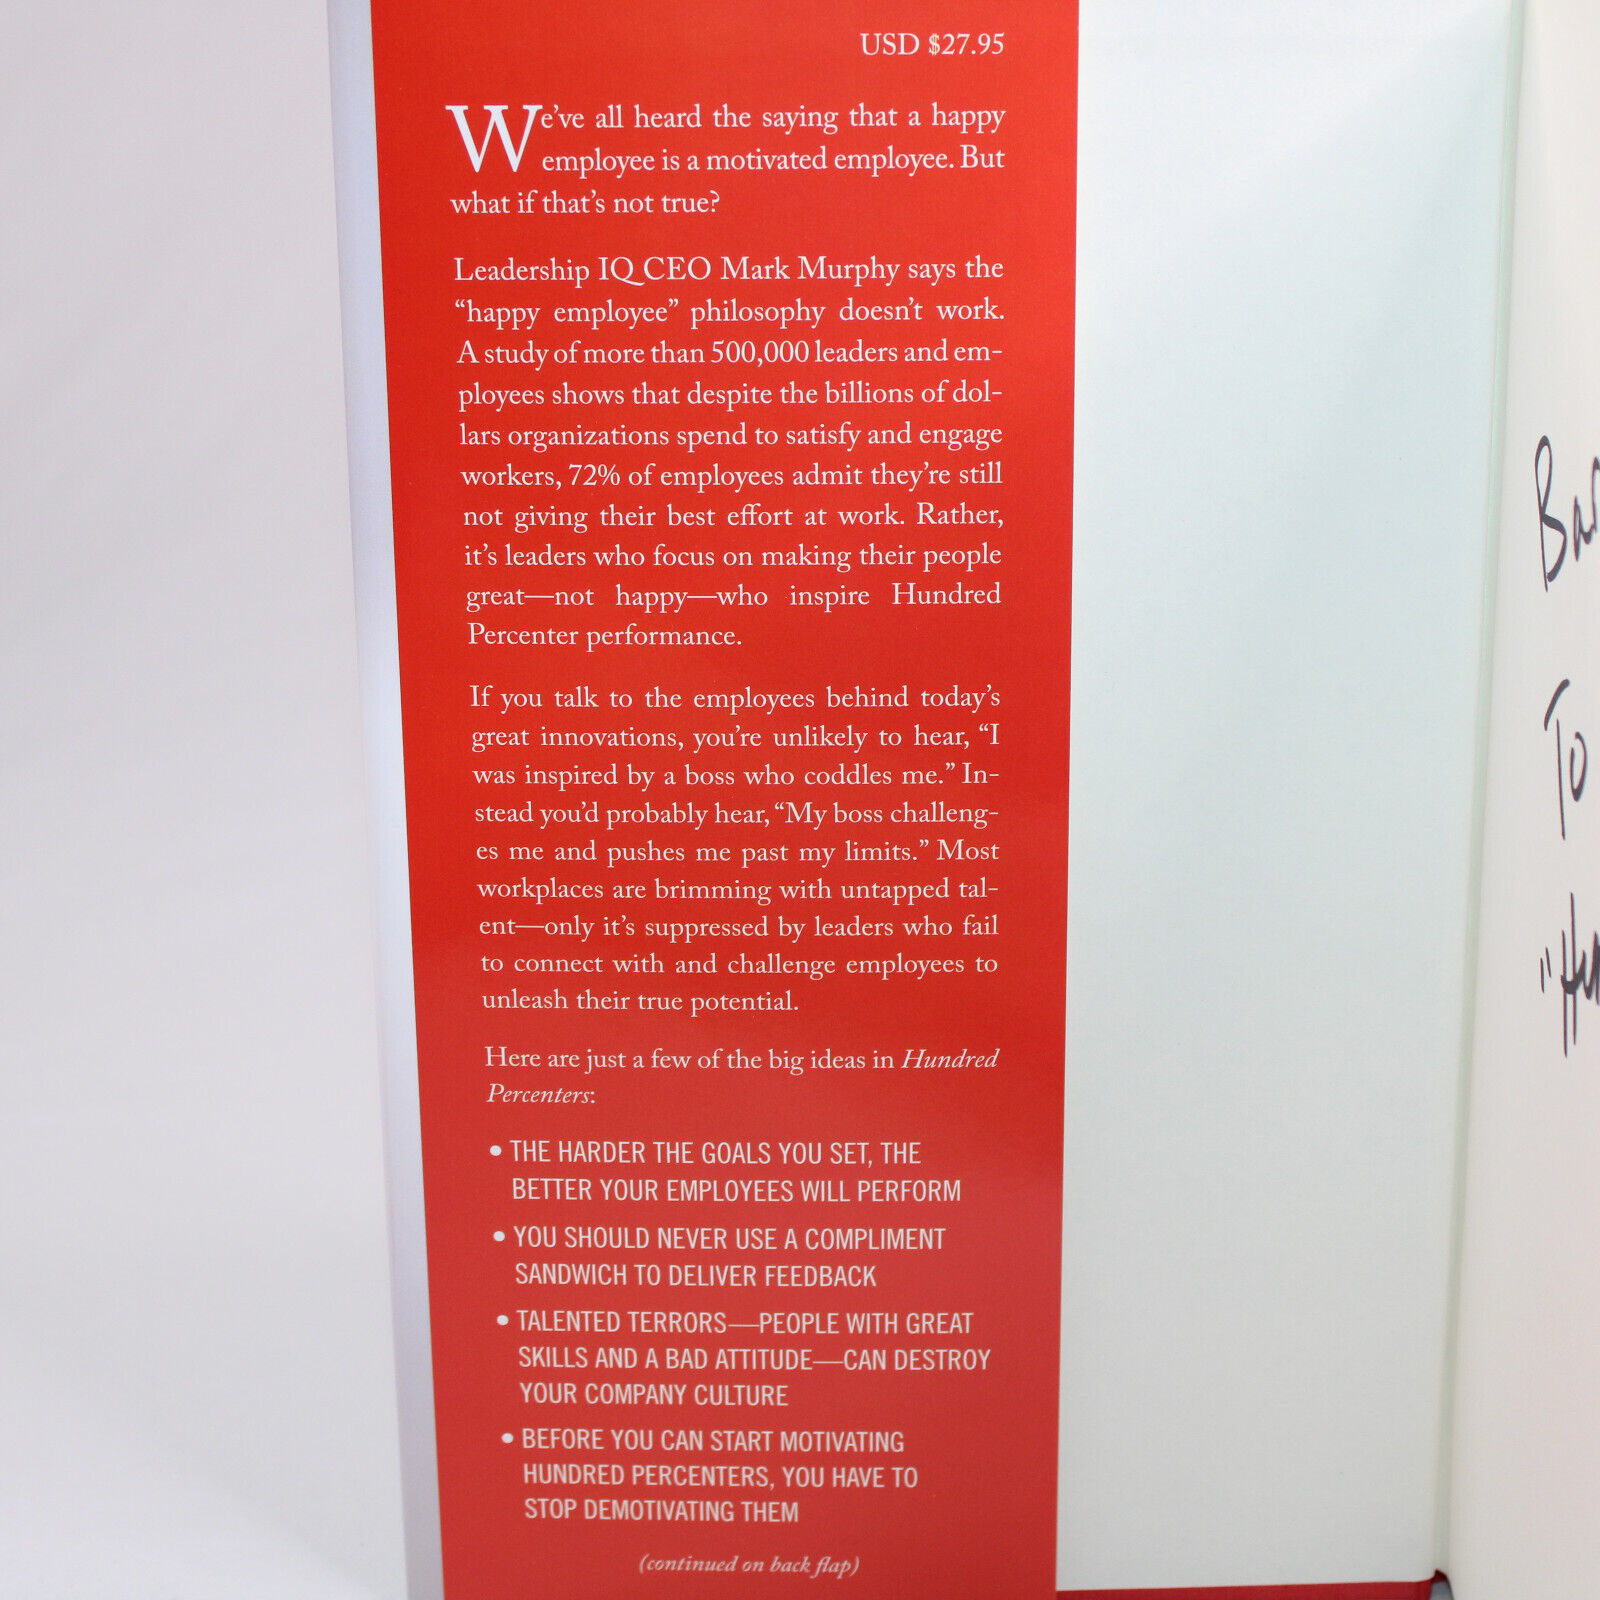 USD $27.95
We've all heard the saying that a happy
employee is a motivated employee. But
what if that's not true?
Leadership IQ CEO Mark Murphy says the
“happy employee” philosophy doesn't work.
A study of more than 500,000 leaders and em-
ployees shows that despite the billions of dol-
lars organizations spend to satisfy and engage
workers, 72% of employees admit they're still
not giving their best effort at work. Rather,
it's leaders who focus on making their people
great—not happy—who inspire Hundred
Percenter performance.
If you talk to the employees behind today's
great innovations, you're unlikely to hear, “I
was inspired by a boss who coddles me.” In-
stead you'd probably hear, “My boss challeng-
es me and pushes me past my limits.” Most
workplaces are brimming with untapped tal-
ent—only it's suppressed by leaders who fail
to connect with and challenge employees to
unleash their true potential.
Here are just a few of the big ideas in Hundred
Percenters:
• THE HARDER THE GOALS YOU SET, THE
BETTER YOUR EMPLOYEES WILL PERFORM
• YOU SHOULD NEVER USE A COMPLIMENT
SANDWICH TO DELIVER FEEDBACK
• TALENTED TERRORS—PEOPLE WITH GREAT
SKILLS AND A BAD ATTITUDE—CAN DESTROY
YOUR COMPANY CULTURE
• BEFORE YOU CAN START MOTIVATING
HUNDRED PERCENTERS, YOU HAVE TO
STOP DEMOTIVATING THEM
(continued on back flap)
To